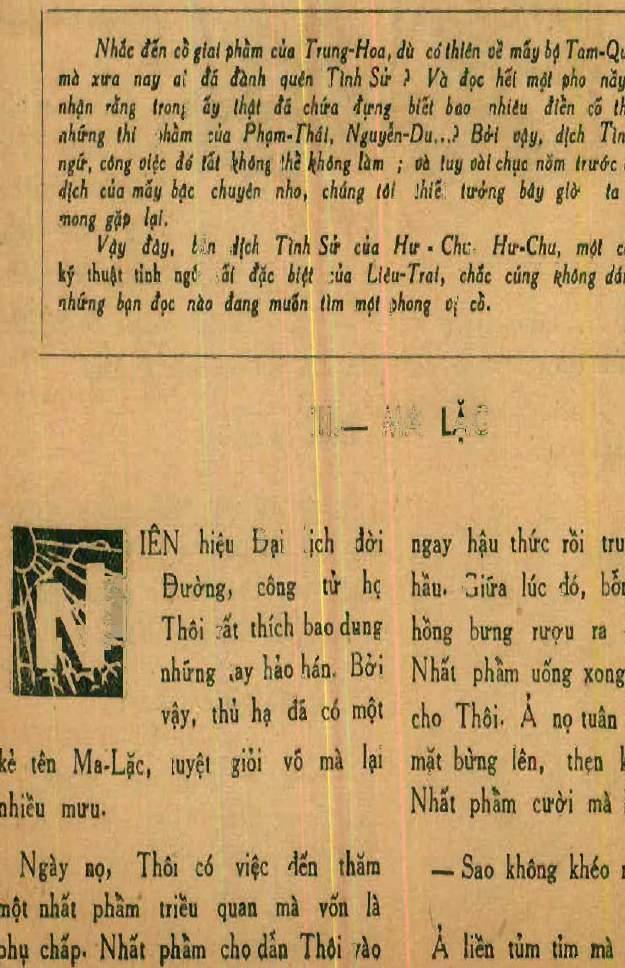 Nhắc đến cổ giai phẩm của Trung-Hoa, dù có thiên về mấy bộ Tam-Qu
mà xưa nay ai đã đành quên Tình Sử ? Và đọc hết một pho nầy
nhận rằng trong ấy thật đã chứa đựng biết bao nhiêu điển cố th
những thi phẩm của Phạm-Thái, Nguyễn-Du...? Bởi vậy, dịch Tìn
ngữ, công việc đó tất không thể không làm ; và tuy vài chục năm trước
dịch của mấy bậc chuyên nho, chúng tôi thiết tưởng bây giờ ta
mong gặp lại.
Vậy đây, bản dịch Tình Sử của Hư - Chu. Hư-Chu, một c
kỹ thuật tinh ngữ rất đặc biệt của Liêu-Trai, chắc cũng không dá
những bạn đọc nào đang muốn tìm một phong vị cổ.
III.— MA LẶC
NIÊN hiệu Đại lịch đời
Đường, công tử họ
Thôi rất thích bao dung
những tay hảo hán. Bởi
vậy, thủ hạ đã có một
kẻ tên Ma-Lặc, tuyệt giỏi võ mà lại
nhiều mưu.
Ngày nọ, Thôi có việc đến thăm
một nhất phẩm triều quan mà vốn là
phụ chấp. Nhất phẩm cho dẫn Thôi vào
ngay hậu thức rồi tru
hầu. Giữa lúc đó, bỗn
hồng bưng rượu ra
Nhất phẩm uống xong
cho Thôi. Ả nọ tuân
mặt bừng lên, thẹn k
Nhất phẩm cười mà
— Sao không khéo
Ả liền tủm tỉm mà